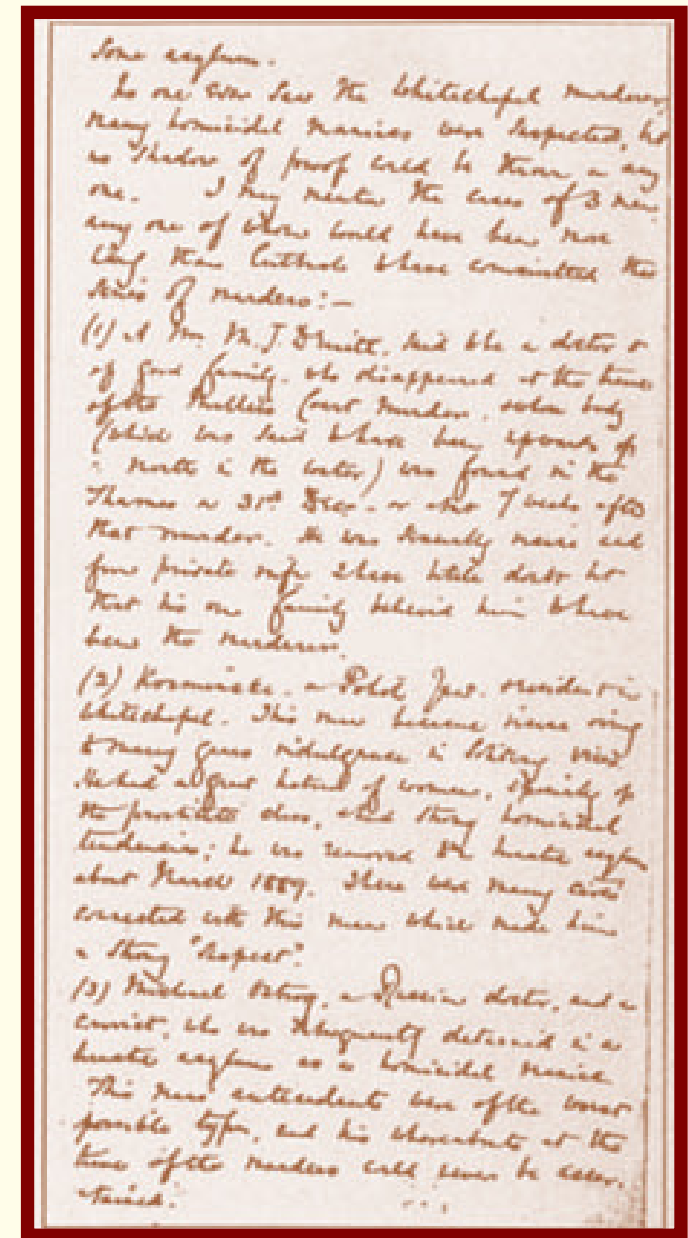 some asylum.
No one ever saw the Whitechapel murderer,
many homicidal maniacs were suspected, but
no shadow of proof could be thrown on any
one. I may mention the cases of 3 men
any one of whom would have been more
likely than Cutbush to have committed this
series of murders:—
(1) A Mr. M. J. Druitt, said to be a doctor &
of good family, who disappeared at the time
of the Miller's Court murder, whose body
(which was said to have been upwards of
a month in the water) was found in the
Thames on 31st Decr. - or about 7 weeks after
that murder. He was sexually insane and
from private info I have little doubt but
that his own family believed him to have
been the murderer.
(2) Kosminski, a Polish Jew, resident in
Whitechapel. This man became insane owing
to many years indulgence in solitary vices.
He had a great hatred of women, specially of
the prostitute class, & had strong homicidal
tendencies; he was removed to a lunatic asylum
about March 1889. There were many circs
connected with this man which made him
a strong "suspect".
(3) Michael Ostrog, a Russian doctor, and a
convict, who was subsequently detained in a
lunatic asylum as a homicidal maniac.
This man's antecedents were of the worst
possible type, and his whereabouts at the
time of the murders could never be ascer-
tained.